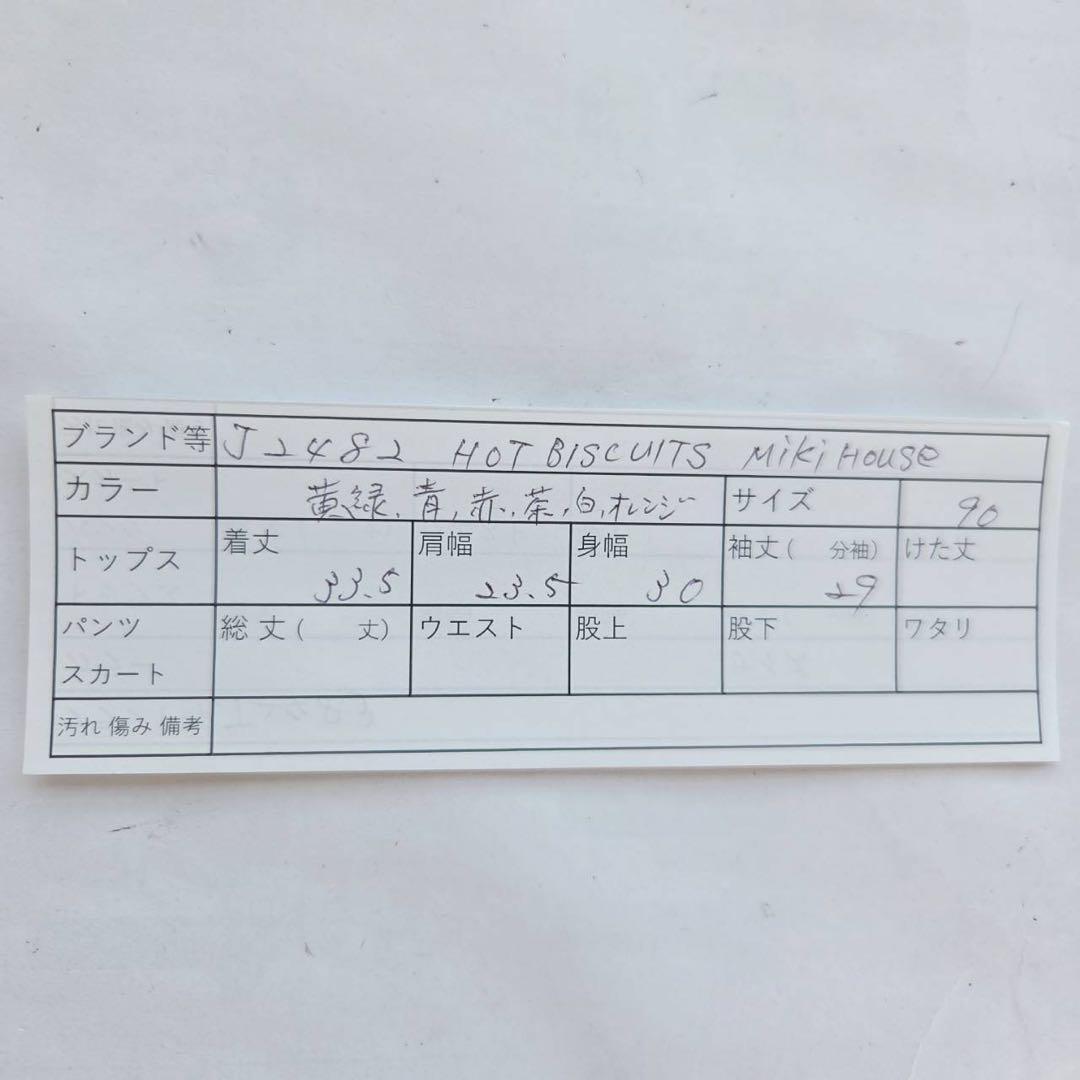 ブランド等 J2482 HOT BISCUITS MiKi HOUSe
カラー 黄緑、青、赤、茶、白、オレンジ サイズ 90
トップス 着丈 33.5 肩幅 23.5 身幅 30 袖丈( 分袖) 29 けた丈
パンツ 総丈( 丈) ウエスト 股上 股下 ワタリ
スカート
汚れ 傷み 備考